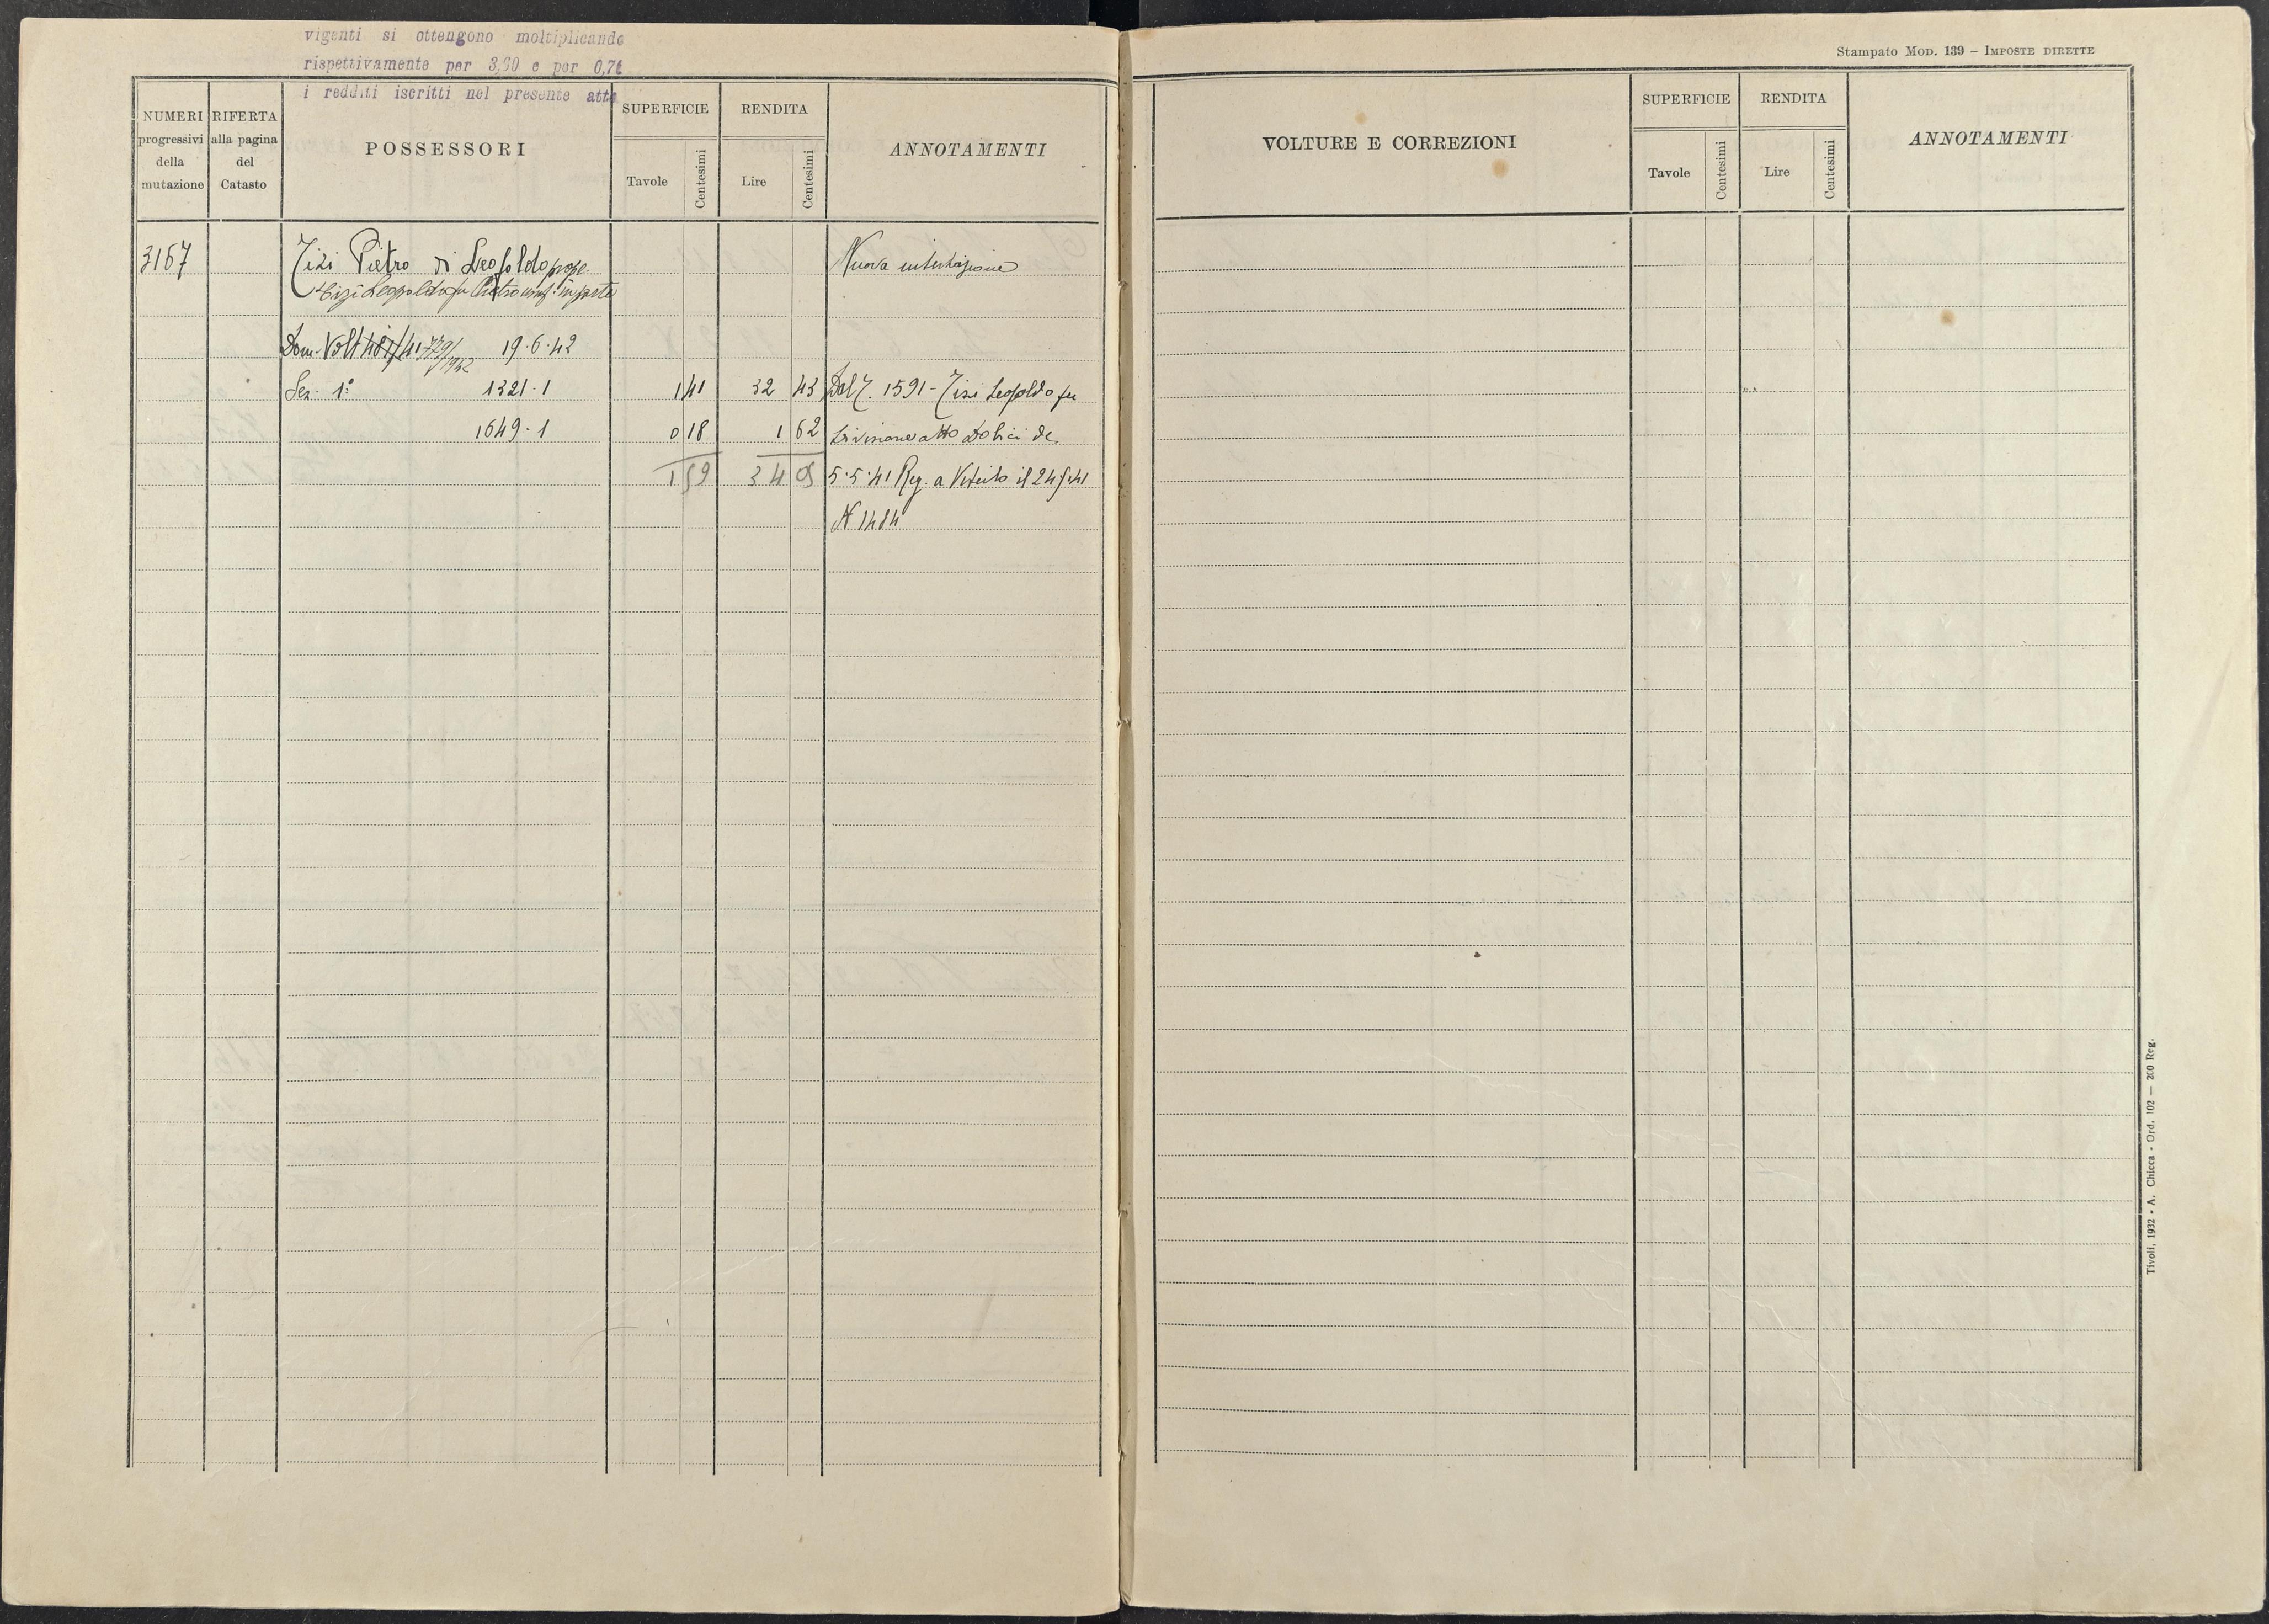 vigenti si ottengono moltiplicando
rispettivamente per 3,60 e per
i redditi iscritti nel presente atto
NUMERI progressivi della mutazione
RIFERTA alla pagina del Catasto
POSSESSORI
SUPERFICIE
Tavole Centesimi
RENDITA
Lire Centesimi
ANNOTAMENTI
3167 Tizi Pietro di Leopoldo prop. Nuova intestazione
Tizi Leopoldo fu Pietro usuf. in parte
Dom. Volt. 779/1942 19.6.42
Sez. 1ª 1321.1 1 41 32 43 Dal . 1591 - Tizi Leopoldo fu
1649.1 0 18 1 62 Divisione atto de
1 59 34 05 5.5.41 Reg. a il 24.5.41
N 1484
Stampato MOD. 139 – IMPOSTE DIRETTE
VOLTURE E CORREZIONI
SUPERFICIE
Tavole Centesimi
RENDITA
Lire Centesimi
ANNOTAMENTI
Tivoli, 1932 - A. Chicca - Ord. 102 — 200 Reg.